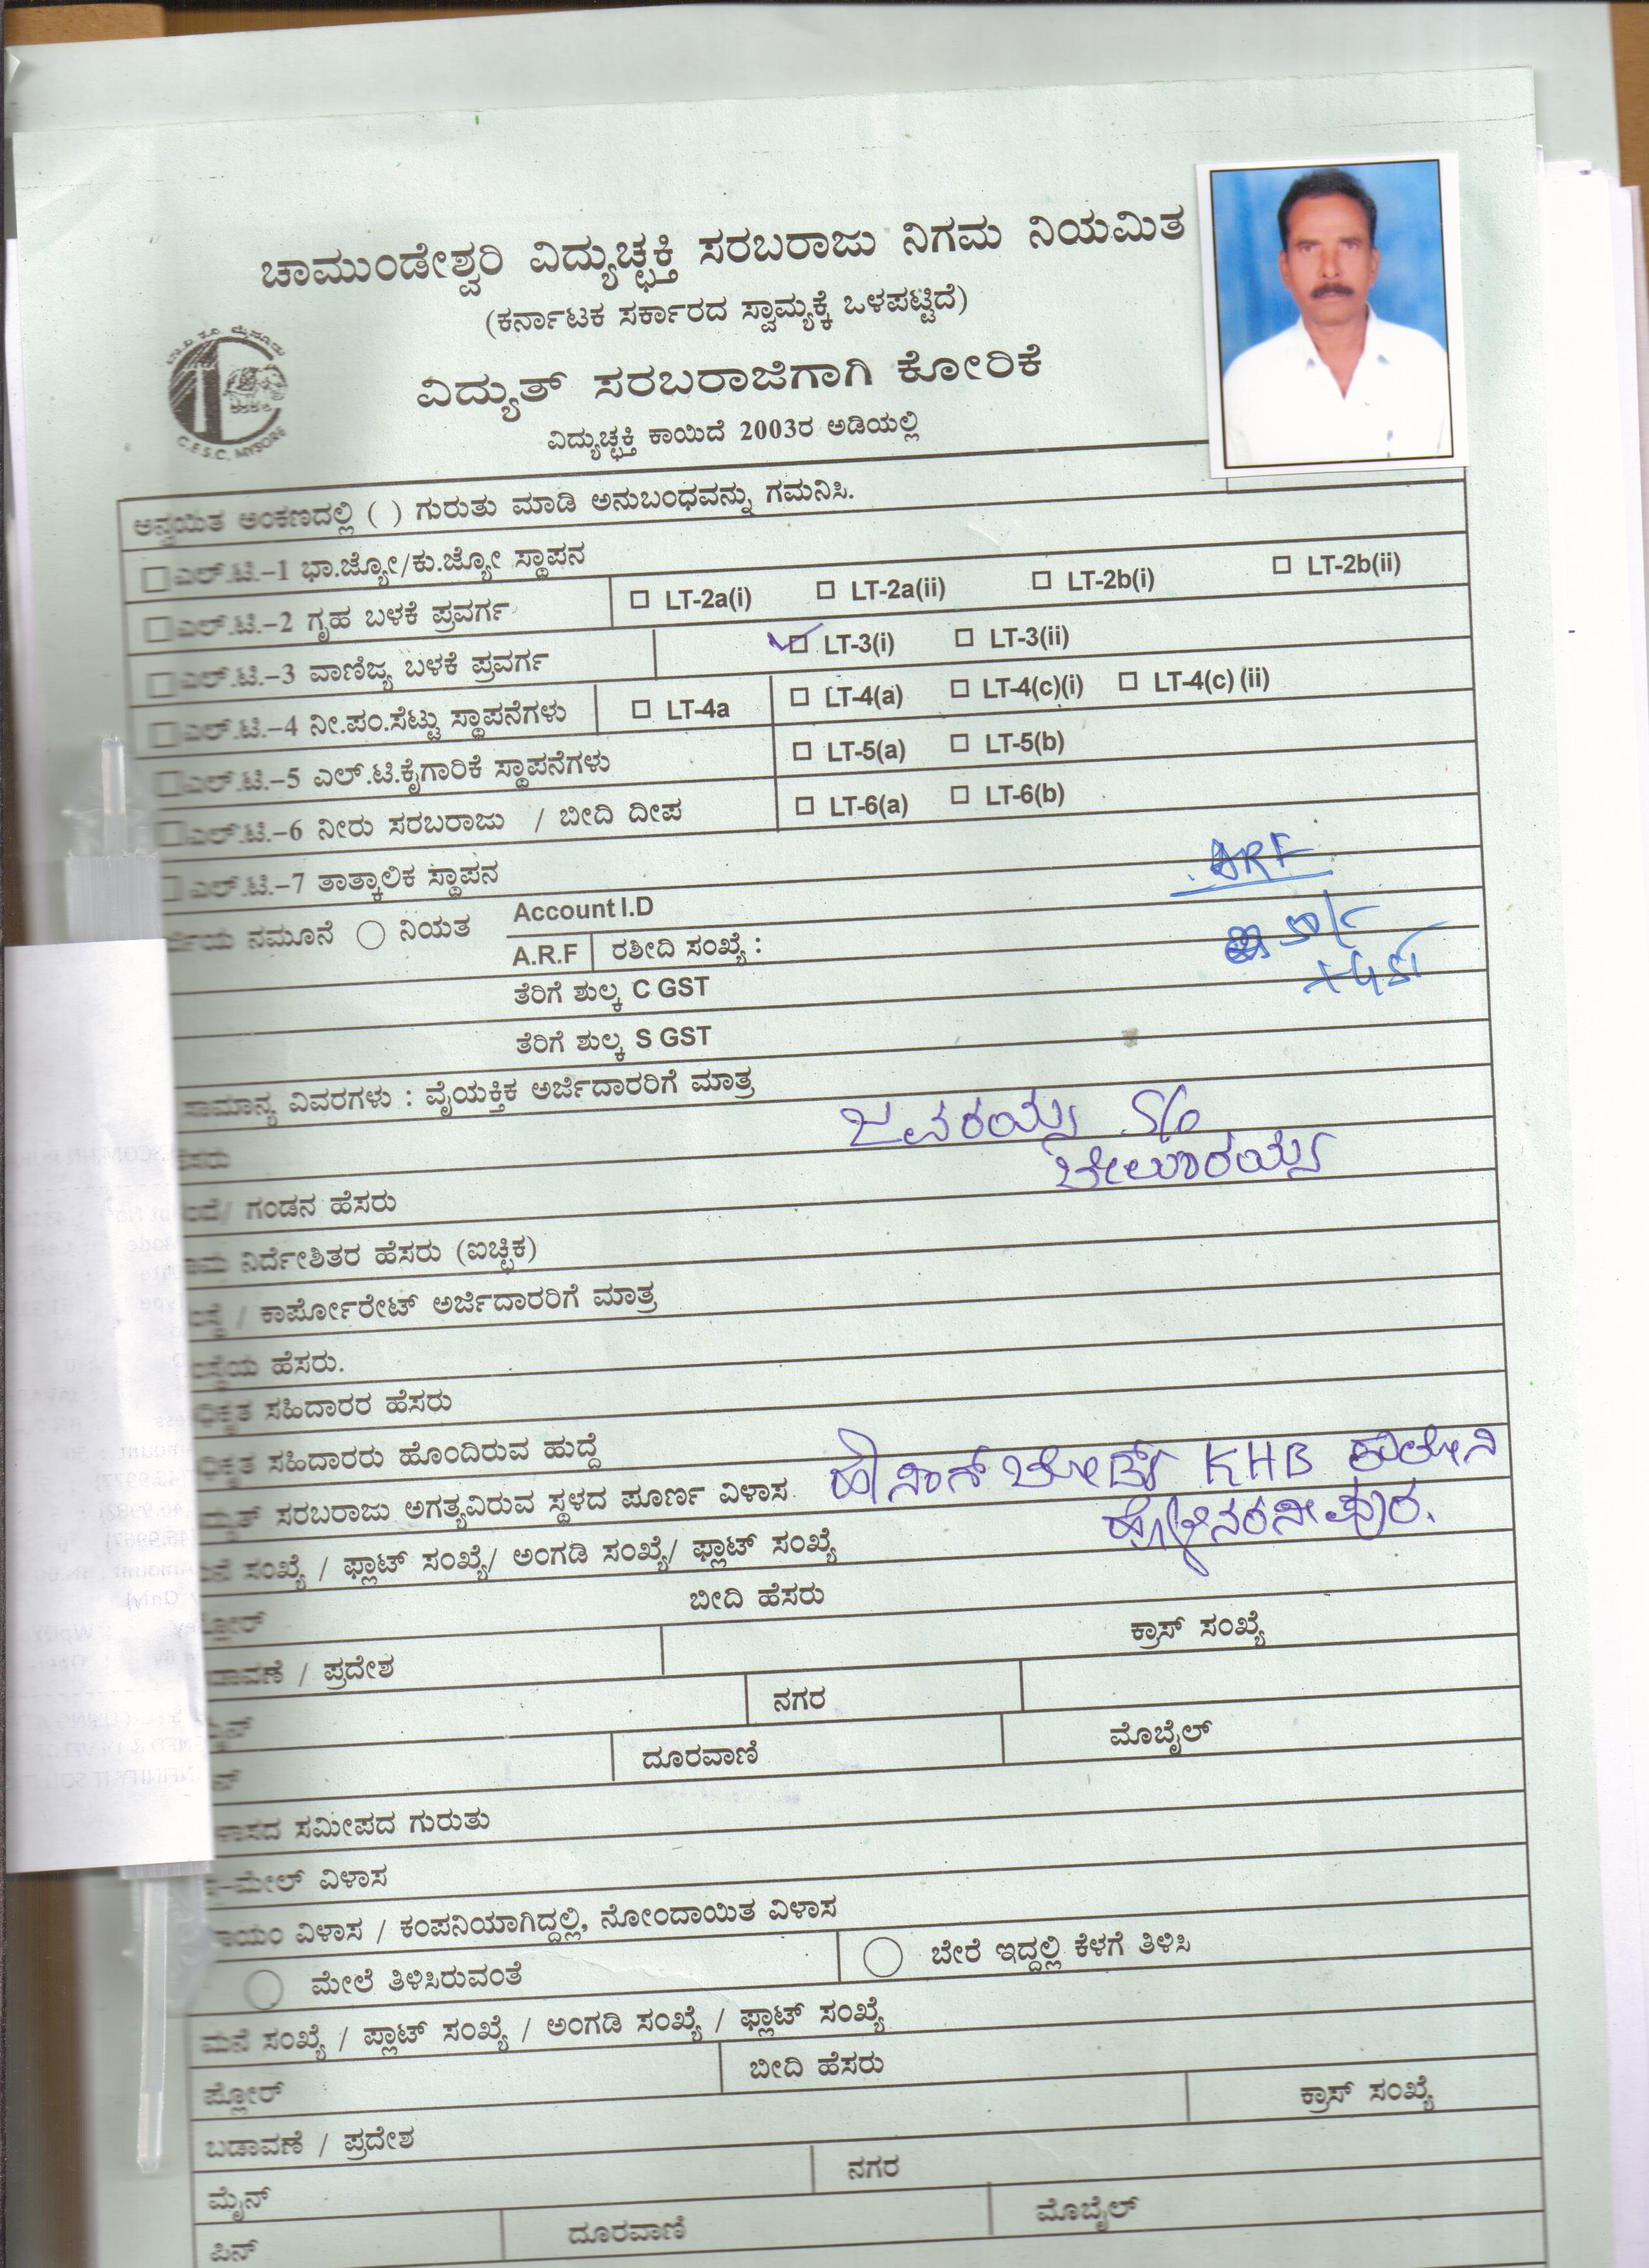 ಚಾಮುಂಡೇಶ್ವರಿ ವಿದ್ಯುಚ್ಛಕ್ತಿ ಸರಬರಾಜು ನಿಗಮ ನಿಯಮಿತ
(ಕರ್ನಾಟಕ ಸರ್ಕಾರದ ಸ್ವಾಮ್ಯಕ್ಕೆ ಒಳಪಟ್ಟಿದೆ)
ವಿದ್ಯುತ್ ಸರಬರಾಜಿಗಾಗಿ ಕೋರಿಕೆ
ವಿದ್ಯುಚ್ಛಕ್ತಿ ಕಾಯಿದೆ 2003ರ ಅಡಿಯಲ್ಲಿ
C.E.S.C. MYSORE
ಅನ್ವಯಿತ ಅಂಕಣದಲ್ಲಿ ( ) ಗುರುತು ಮಾಡಿ ಅನುಬಂಧವನ್ನು ಗಮನಿಸಿ.
ಎಲ್.ಟಿ.–1 ಭಾ.ಜ್ಯೋ/ಕು.ಜ್ಯೋ ಸ್ಥಾಪನ
ಎಲ್.ಟಿ.–2 ಗೃಹ ಬಳಕೆ ಪ್ರವರ್ಗ LT-2a(i) LT-2a(ii) LT-2b(i) LT-2b(ii)
ಎಲ್.ಟಿ.–3 ವಾಣಿಜ್ಯ ಬಳಕೆ ಪ್ರವರ್ಗ LT-3(i) LT-3(ii)
ಎಲ್.ಟಿ.–4 ನೀ.ಪಂ.ಸೆಟ್ಟು ಸ್ಥಾಪನೆಗಳು LT-4a LT-4(a) LT-4(c)(i) LT-4(c) (ii)
ಎಲ್.ಟಿ.–5 ಎಲ್.ಟಿ.ಕೈಗಾರಿಕೆ ಸ್ಥಾಪನೆಗಳು LT-5(a) LT-5(b)
ಎಲ್.ಟಿ.–6 ನೀರು ಸರಬರಾಜು / ಬೀದಿ ದೀಪ LT-6(a) LT-6(b)
ಎಲ್.ಟಿ.–7 ತಾತ್ಕಾಲಿಕ ಸ್ಥಾಪನ
ARF
ನಮೂನೆ ನಿಯತ Account I.D
A.R.F ರಶೀದಿ ಸಂಖ್ಯೆ :
ತೆರಿಗೆ ಶುಲ್ಕ C GST
ತೆರಿಗೆ ಶುಲ್ಕ S GST
ಸಾಮಾನ್ಯ ವಿವರಗಳು : ವೈಯಕ್ತಿಕ ಅರ್ಜಿದಾರರಿಗೆ ಮಾತ್ರ
ಜವರಯ್ಯ S/o
ಗಂಡನ ಹೆಸರು
ನಿರ್ದೇಶಿತರ ಹೆಸರು (ಐಚ್ಛಿಕ)
/ ಕಾರ್ಪೋರೇಟ್ ಅರ್ಜಿದಾರರಿಗೆ ಮಾತ್ರ
ಹೆಸರು.
ಸಹಿದಾರರ ಹೆಸರು
ಸಹಿದಾರರು ಹೊಂದಿರುವ ಹುದ್ದೆ
ಸರಬರಾಜು ಅಗತ್ಯವಿರುವ ಸ್ಥಳದ ಪೂರ್ಣ ವಿಳಾಸ. ಹೌಸಿಂಗ್ ಬೋರ್ಡ್ KHB ಕಾಲೋನಿ
ಹೊಳೆನರಸೀಪುರ.
ಸಂಖ್ಯೆ / ಫ್ಲಾಟ್ ಸಂಖ್ಯೆ/ ಅಂಗಡಿ ಸಂಖ್ಯೆ/ ಫ್ಲಾಟ್ ಸಂಖ್ಯೆ
ಬೀದಿ ಹೆಸರು
/ ಪ್ರದೇಶ ಕ್ರಾಸ್ ಸಂಖ್ಯೆ
ನಗರ
ದೂರವಾಣಿ ಮೊಬೈಲ್
ಸಮೀಪದ ಗುರುತು
ಮೇಲ್ ವಿಳಾಸ
ವಿಳಾಸ / ಕಂಪನಿಯಾಗಿದ್ದಲ್ಲಿ, ನೋಂದಾಯಿತ ವಿಳಾಸ
ಮೇಲೆ ತಿಳಿಸಿರುವಂತೆ ಬೇರೆ ಇದ್ದಲ್ಲಿ ಕೆಳಗೆ ತಿಳಿಸಿ
ಮನೆ ಸಂಖ್ಯೆ / ಪ್ಲಾಟ್ ಸಂಖ್ಯೆ / ಅಂಗಡಿ ಸಂಖ್ಯೆ / ಫ್ಲಾಟ್ ಸಂಖ್ಯೆ
ಫ್ಲೋರ್ ಬೀದಿ ಹೆಸರು
ಬಡಾವಣೆ / ಪ್ರದೇಶ ಕ್ರಾಸ್ ಸಂಖ್ಯೆ
ಮೈನ್ ನಗರ
ಪಿನ್ ದೂರವಾಣಿ ಮೊಬೈಲ್